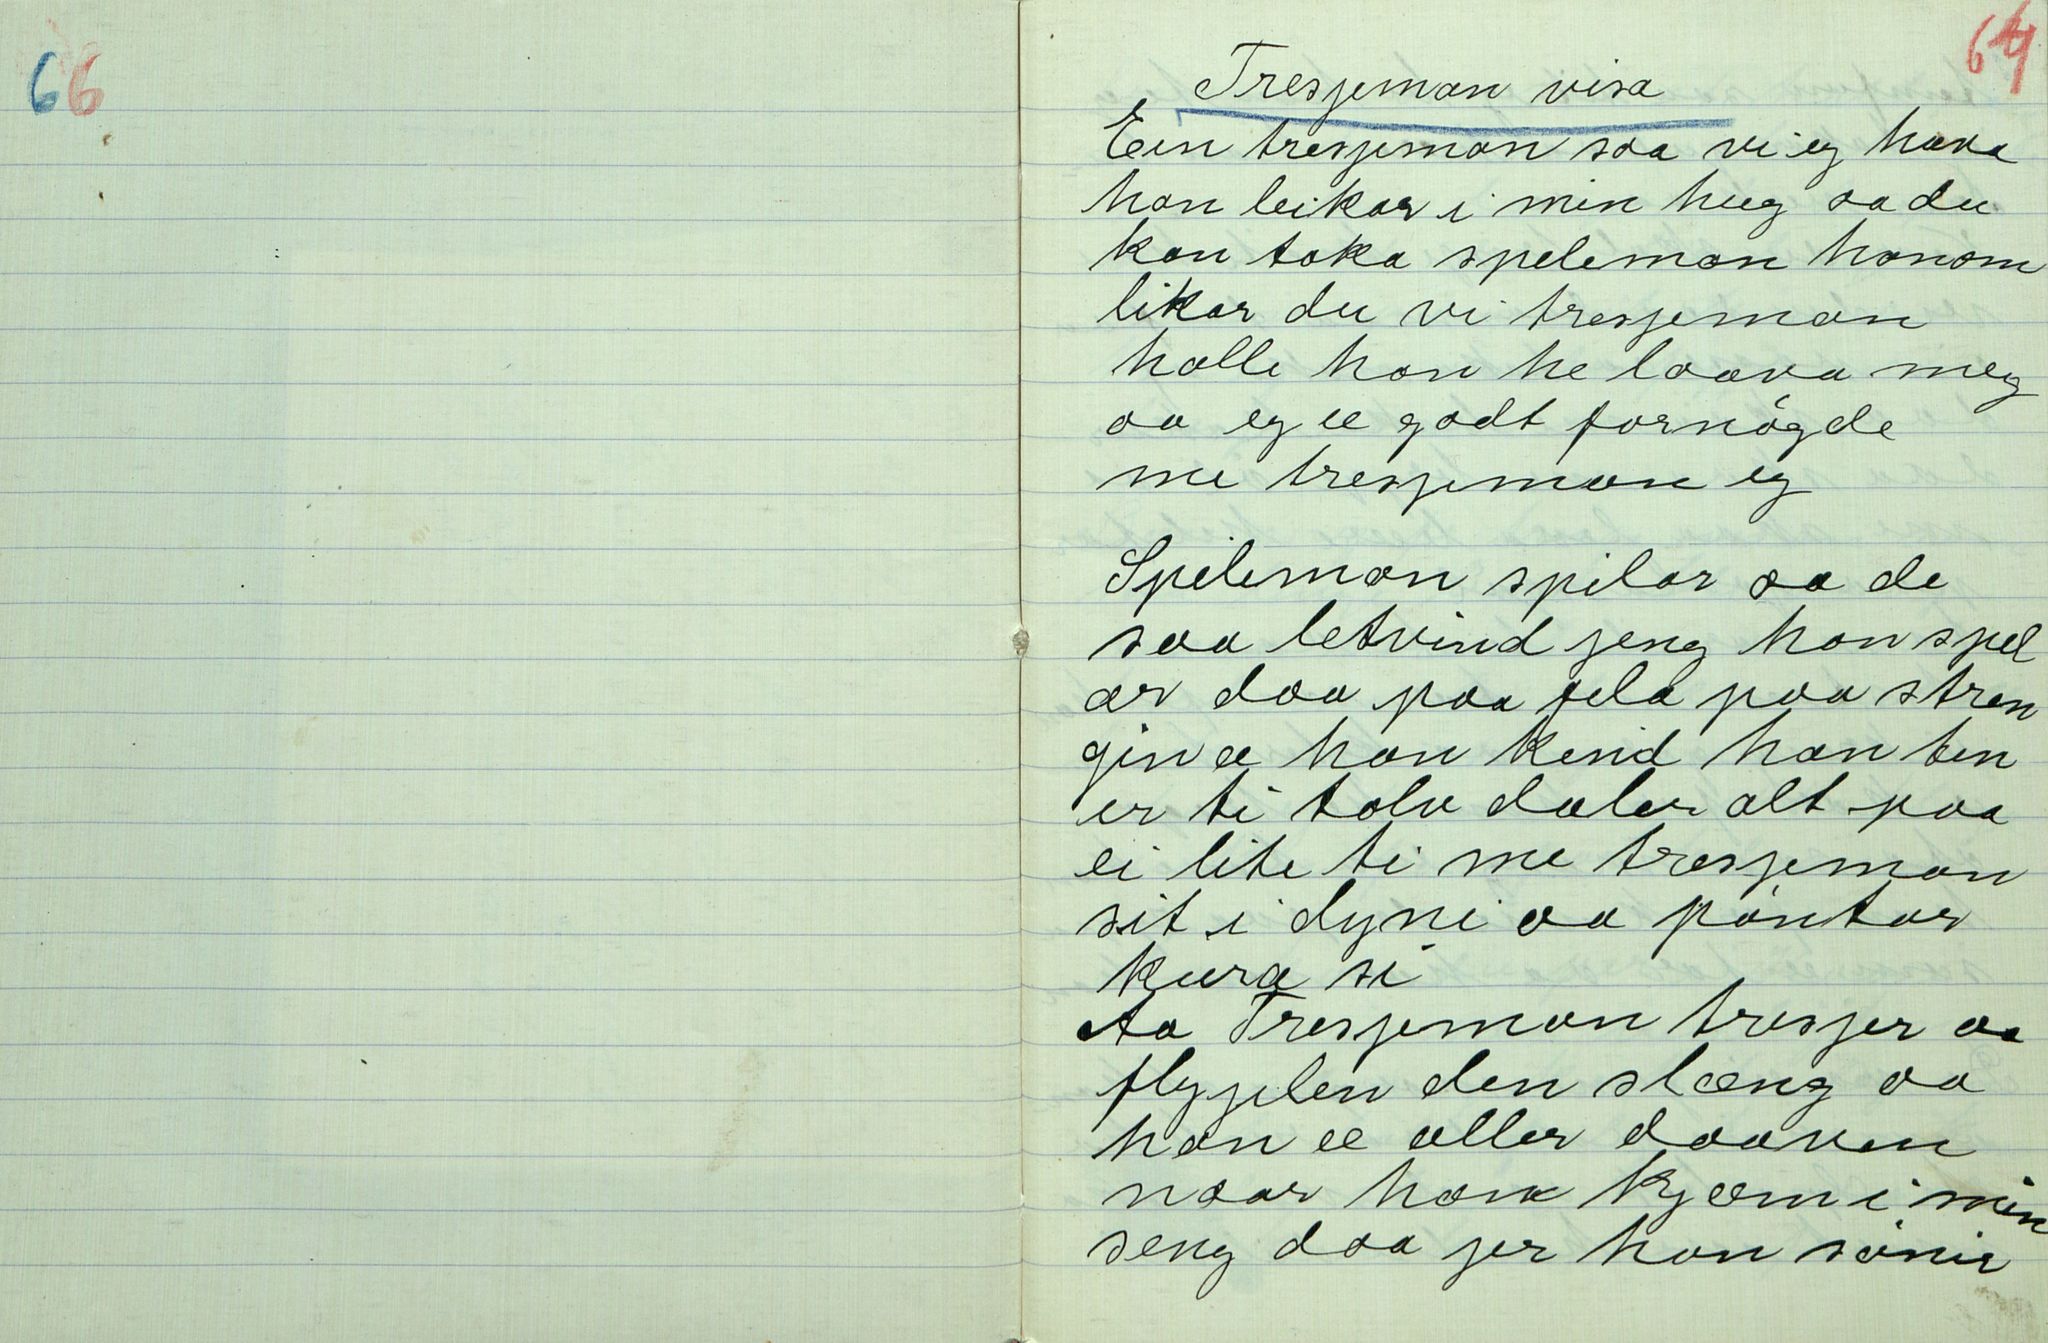 66
67
Tresjeman visa
Ein tresjeman saa vi eg hava
han leikar i min hug aa du
kan taka speleman honom
likar du vi tresjeman
halle han he laava meg
aa eg æ godt fornögde
me tresjeman eg
Speleman spilar aa de
saa letvind jeng han spel
ar daa paa fela paa stren
gin æ han kend han ten
er ti tolv daler alt paa
ei lite ti me tresjeman
sit i dyni aa pöntar
kura si
Aa Tresjeman tresjer aa
flygjelen den slæng aa
han æ aller daaven
naar han kjæm i min
seng daa jer han sönir